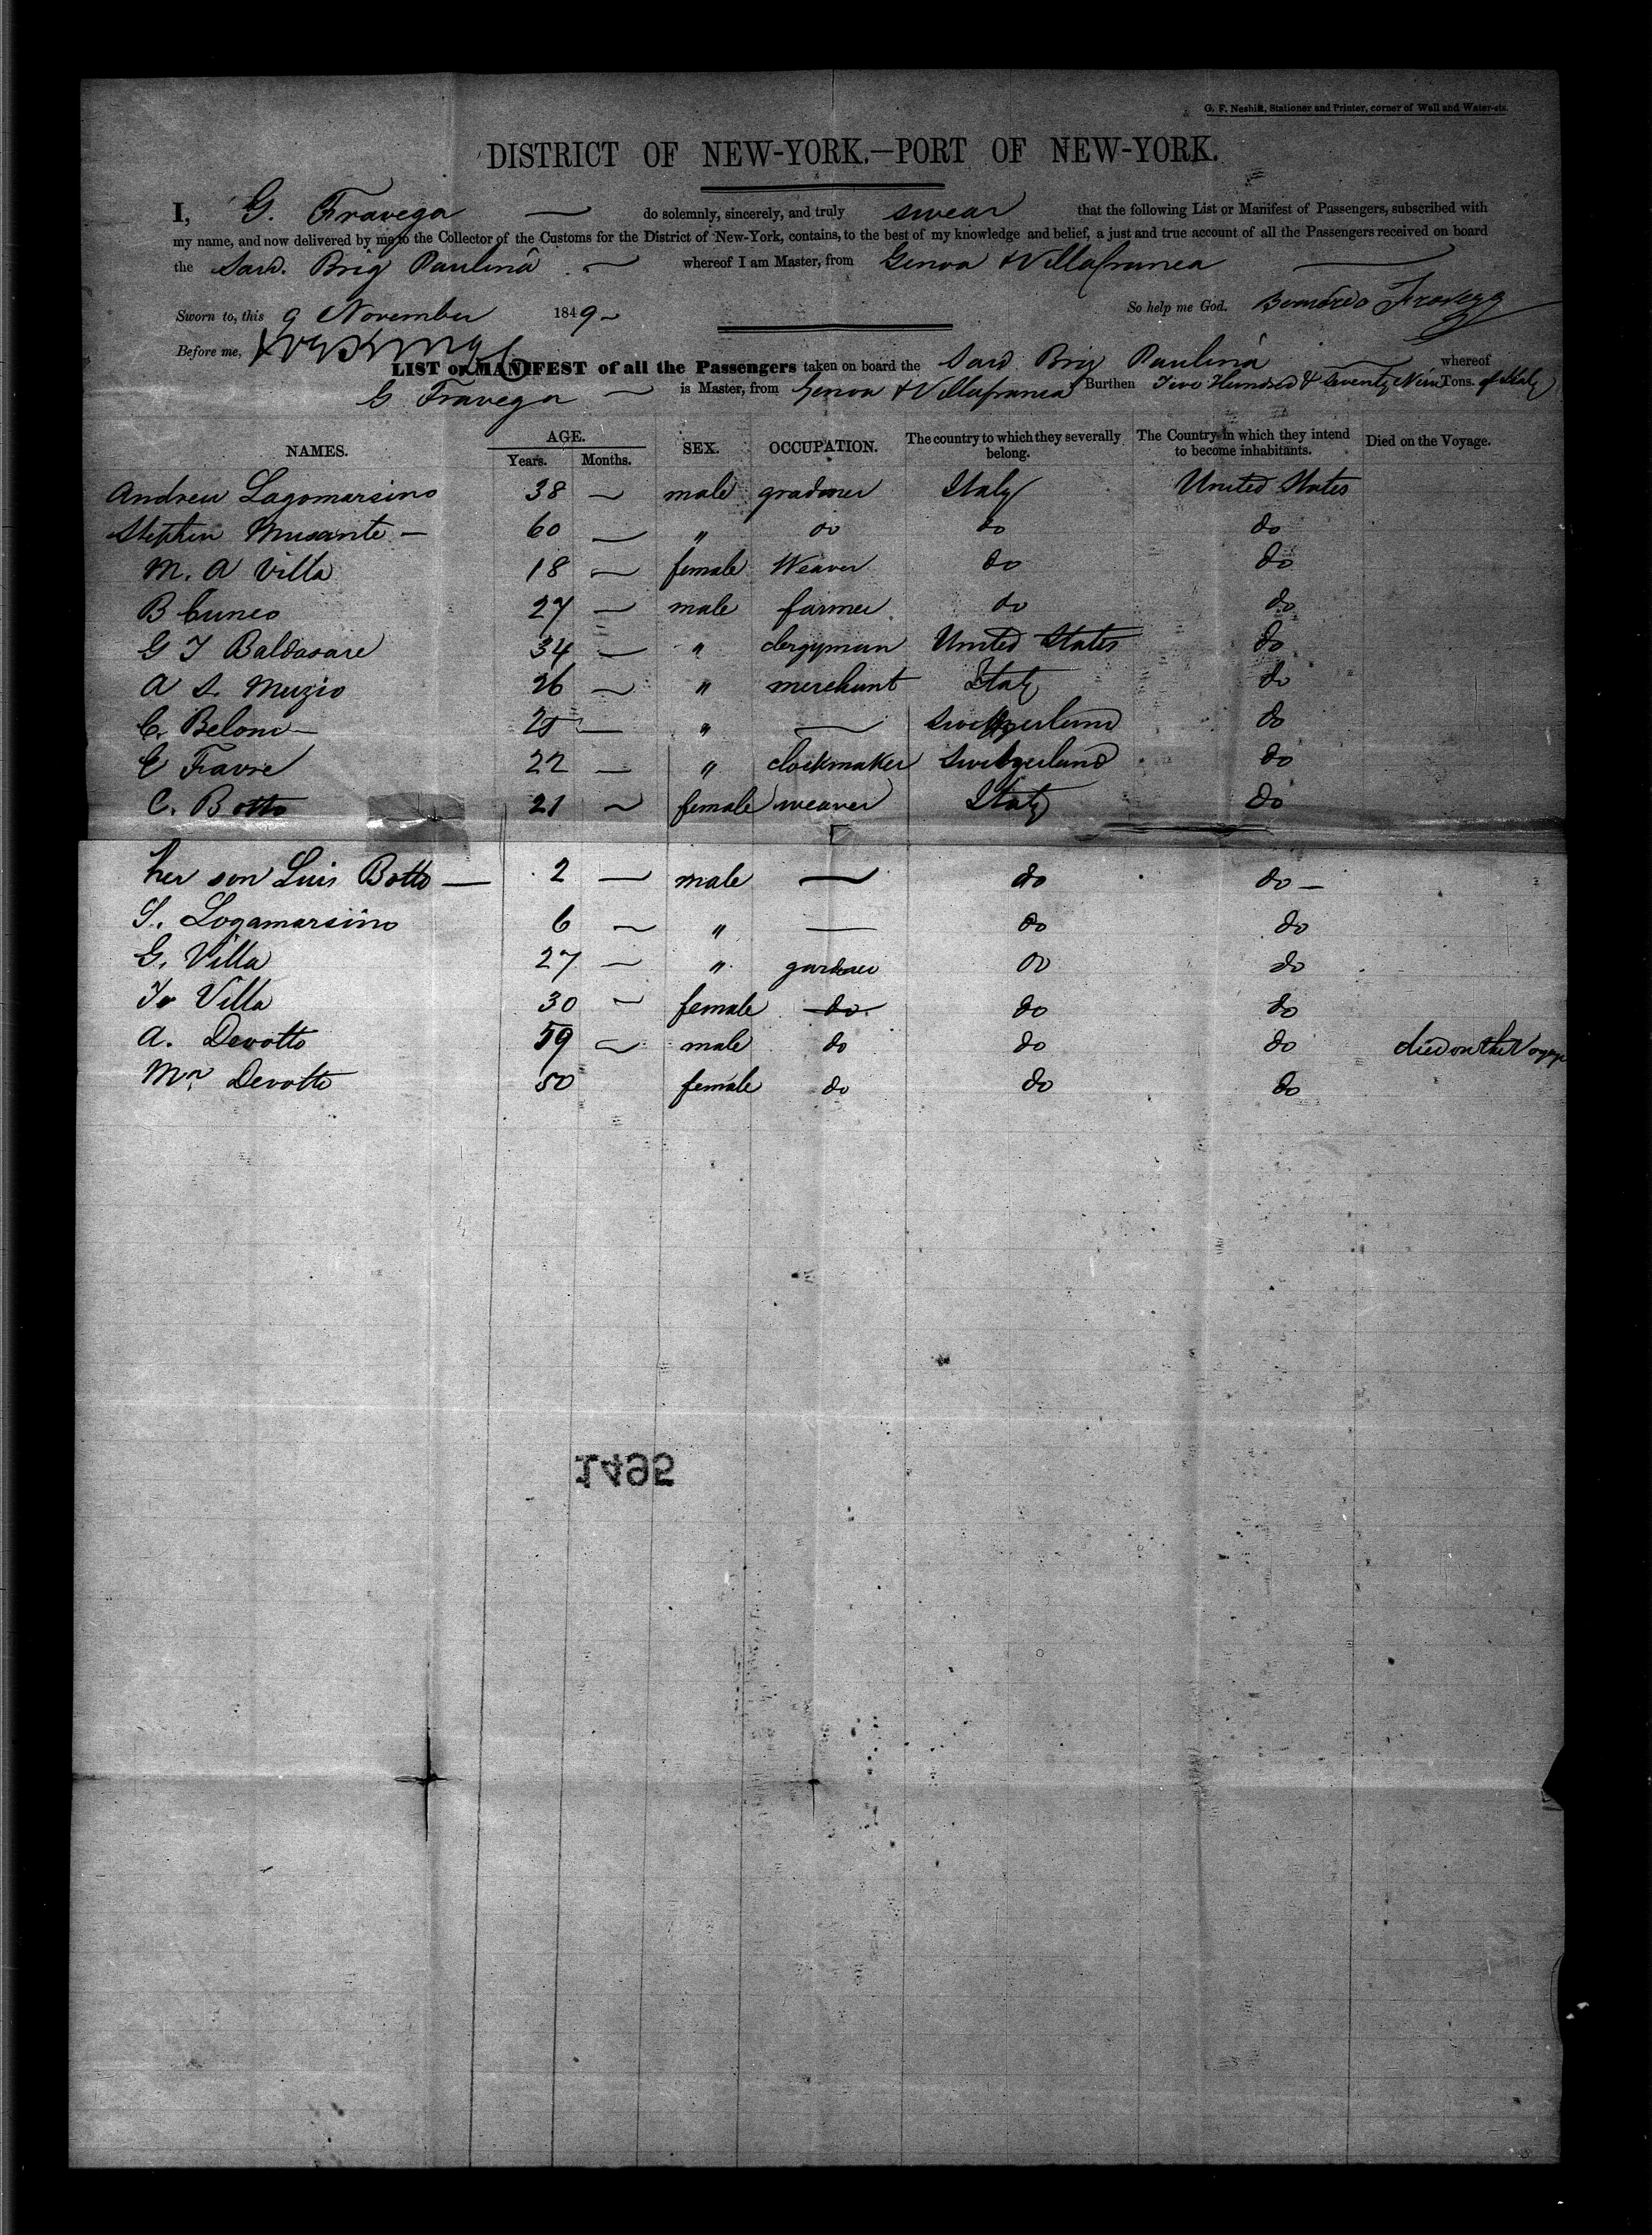 G. F. Nesbitt, Stationer and Printer, corner of Wall and Water-sts.
DISTRICT OF NEW-YORK.—PORT OF NEW-YORK.
I, G. Fravega — do solemnly, sincerely, and truly swear that the following List or Manifest of Passengers, subscribed with
my name, and now delivered by me to the Collector of the Customs for the District of New-York, contains, to the best of my knowledge and belief, a just and true account of all the Passengers received on board
the Sard. Brig Paulina — whereof I am Master, from Genoa & Villafranca —
Sworn to, this 9 November 1849 — So help me God. Fravega
Before me,
LIST or MANIFEST of all the Passengers taken on board the Sard Brig Paulina — whereof
G Fravega — is Master, from Genoa & Villafranca Burthen Two Hundred & Seventy Nine Tons. of Italy
NAMES. AGE. Years. Months. SEX. OCCUPATION. The country to which they severally belong. The Country in which they intend to become inhabitants. Died on the Voyage.
Andrew Lagomarsino 38 — male gradner Italy United States
Stephen Musante — 60 — " do do do
M. A Villa 18 — female Weaver do do
B Cuneo 27 — male farmer do do
G J Baldasare 34 — " clergyman United States do
A S. Muzio 26 — " merchant Italy do
C. Beloni — 25 — " — Switzerland do
E Favre 22 — " clockmaker Switzerland do
C. Botto 21 — female weaver Italy do
her son Luis Botto — 2 — male — do do —
S. Logamarsino 6 — " — do do
G. Villa 27 — " gardner do do
Villa 30 — female do do do
A. Devotto 59 — male do do do died on the Voyage
Devotto 50 female do do do
1495